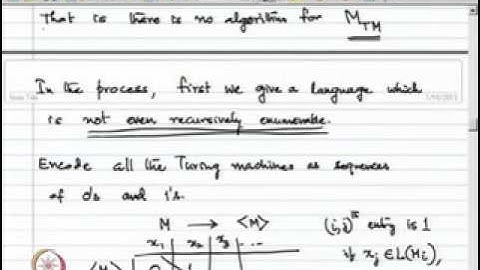 That is there is no algorithm for M_TM
In the process, first we give a language which
is not even recursively enumerable.
Encode all the Turing machines as sequences
of 0s and 1's.
M → <M>
(i,j)th entry is 1
x1 x2 x3 ...
if xj ∈ L(Mi),
<M>